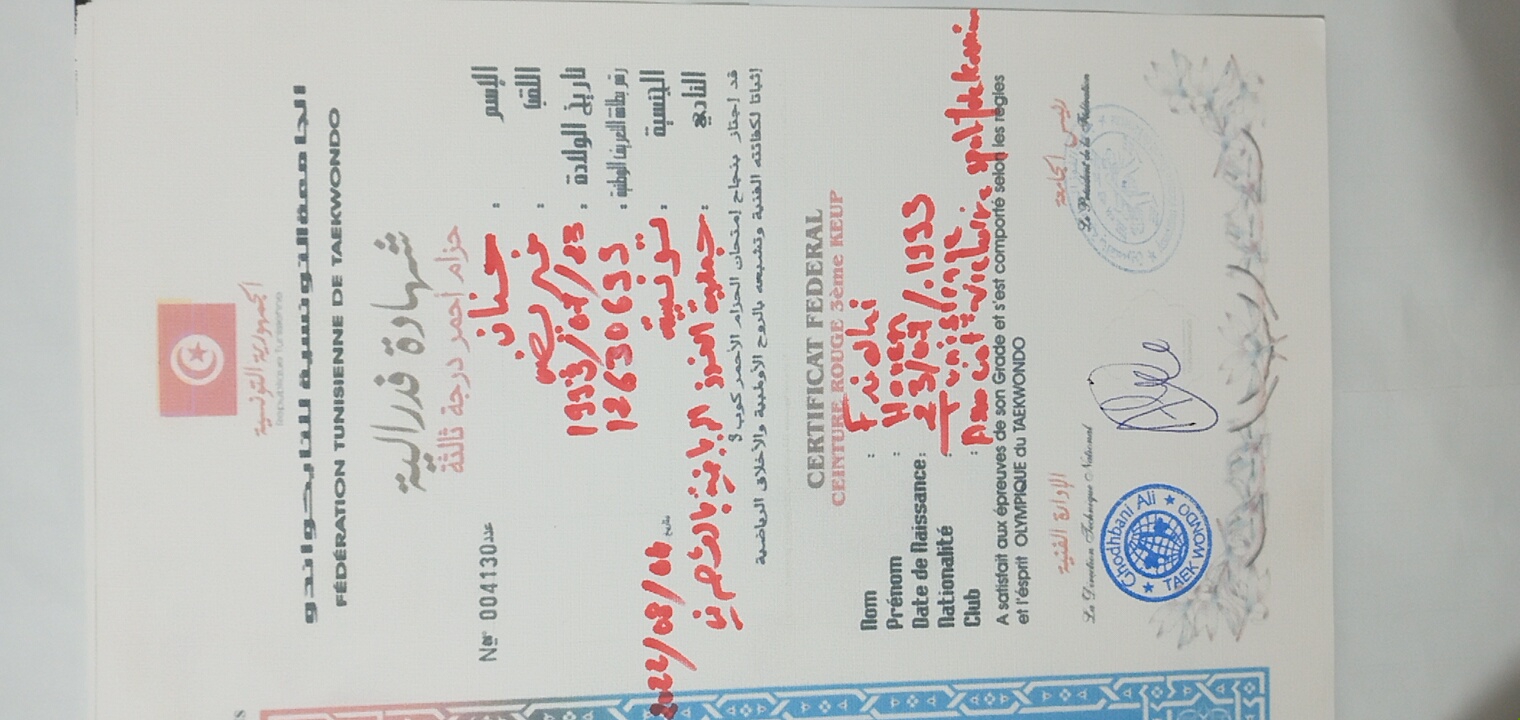 الجمهورية التونسية
République Tunisienne
الجامعة التونسية للتايكواندو
FÉDÉRATION TUNISIENNE DE TAEKWONDO
شهادة فدرالية
حزام أحمر درجة ثالثة
Nº 004130 عدد
الإسم : حنان
اللقب :
تاريخ الولادة : 1993/07/23
رقم بطاقة التعريف الوطنية :
الجنسية : تونسية
النادي : جمعية
بتاريخ 2022/08/
قد إجتاز بنجاح إمتحان الحزام الأحمر كوب 3
إثباتا لكفائته الفنية وتشبعه بالروح الأولمبية والأخلاق الرياضية
CERTIFICAT FEDERAL
CEINTURE ROUGE 3ème KEUP
Nom :
Prénom : Hanen
Date de Naissance : 23/07/1993
Nationalité :
Club :
A satisfait aux épreuves de son Grade et s'est comporté selon les règles
et l'ésprit OLYMPIQUE du TAEKWONDO
الإدارة الفنية
La Direction Technique National
رئيس الجامعة
Le Président de la Fédération
Ghodhbani Ali
TAEKWONDO